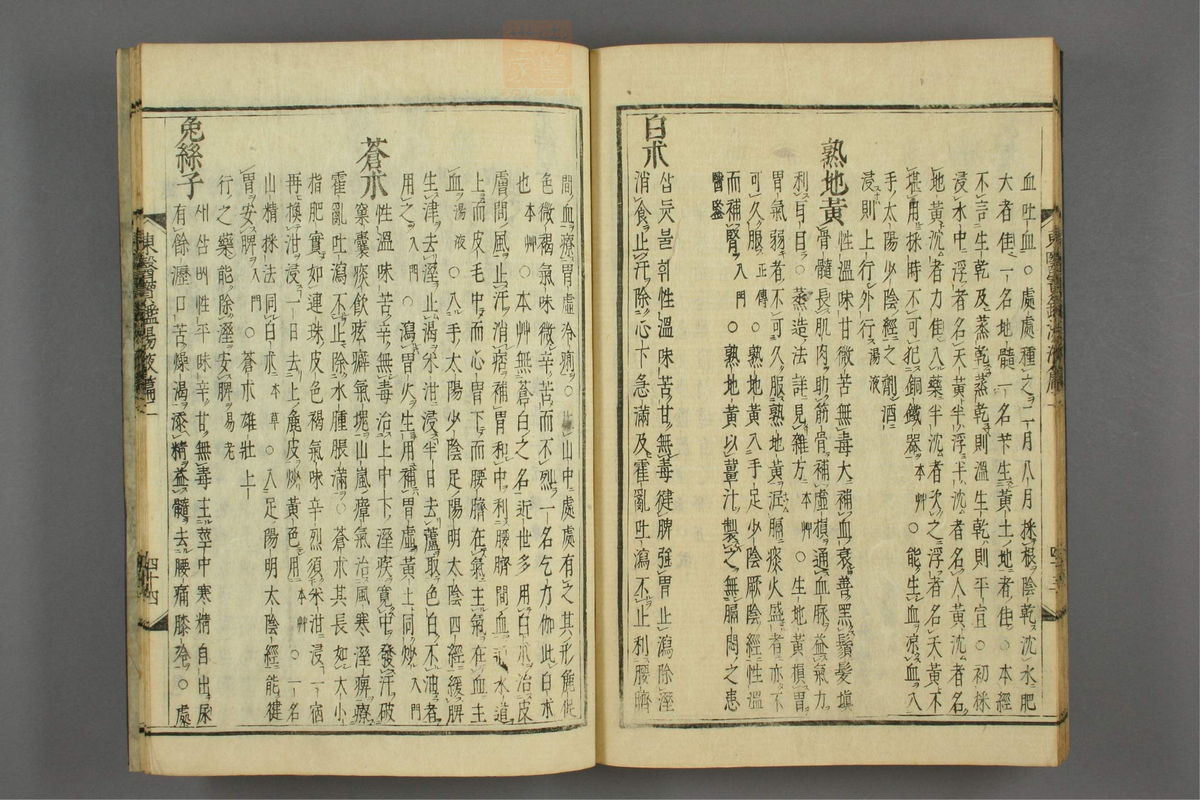 血吐血○處處種之二月八月採根陰乾沈水肥
大者佳一名地髓一名芐生黃土地者佳○本經
不言生乾及蒸乾蒸乾則溫生乾則平宜○初採
浸水中浮者名天黃半浮半沈者名人黃沈者名
地黃沈者力佳入藥半沈者次之浮者名天黃不
堪用採時不可犯銅鐵器本艸○能生血涼血入
手太陽少陰經之劑酒
浸則上行外行湯液
熟地黃
性溫味甘微苦無毒大補血衰善黑鬚髮塡
骨髓長肌肉助筋骨補虛損通血脉益氣力
利耳目○蒸造法詳見雜方本艸○生地黃損胃
胃氣弱者不可久服熟地黃泥膈痰火盛者亦不
可久服正傳○熟地黃入手足少陰厥陰經性溫
而補腎入門○熟地黃以薑汁製之無膈悶之患
醫鑑
白朮
삽듓불휘性溫味苦甘無毒健脾強胃止瀉除溼
消食止汗除心下急滿及霍亂吐瀉不止利腰臍
間血療胃虛冷痢○生山中處處有之其形麁促
色微褐氣味微辛苦而不烈一名乞力伽此白朮
也本艸○本艸無蒼白之名近世多用白朮治皮
膚間風止汗消痞補胃和中利腰臍間血通水道
上而皮毛中而心胃下而腰臍在氣主氣在血主
血湯液○入手太陽少陰足陽明太陰四經緩脾
生津去溼止渴米泔浸半日去蘆取色白不油者
用之入門○瀉胃火生用補胃虛黃土同炒入門
蒼朮
性溫味苦辛無毒治上中下溼疾寬中發汗破
窠囊痰飮痃癖氣塊山嵐瘴氣治風寒溼痺療
霍亂吐瀉不止除水腫脹滿○蒼朮其長如大小
指肥實如連珠皮色褐氣味辛烈須米泔浸一宿
再換泔浸一日去上麁皮炒黃色用本艸○一名
山精採法同白朮本草○入足陽明太陰經能健
胃安脾入門○蒼朮雄壯上
行之藥能除溼安脾易老
兔絲子
새삼씨性平味辛甘無毒主莖中寒精自出尿
有餘瀝口苦燥渴添精益髓去腰痛膝冷○處
東醫寶鑑湯液篇二
四十四